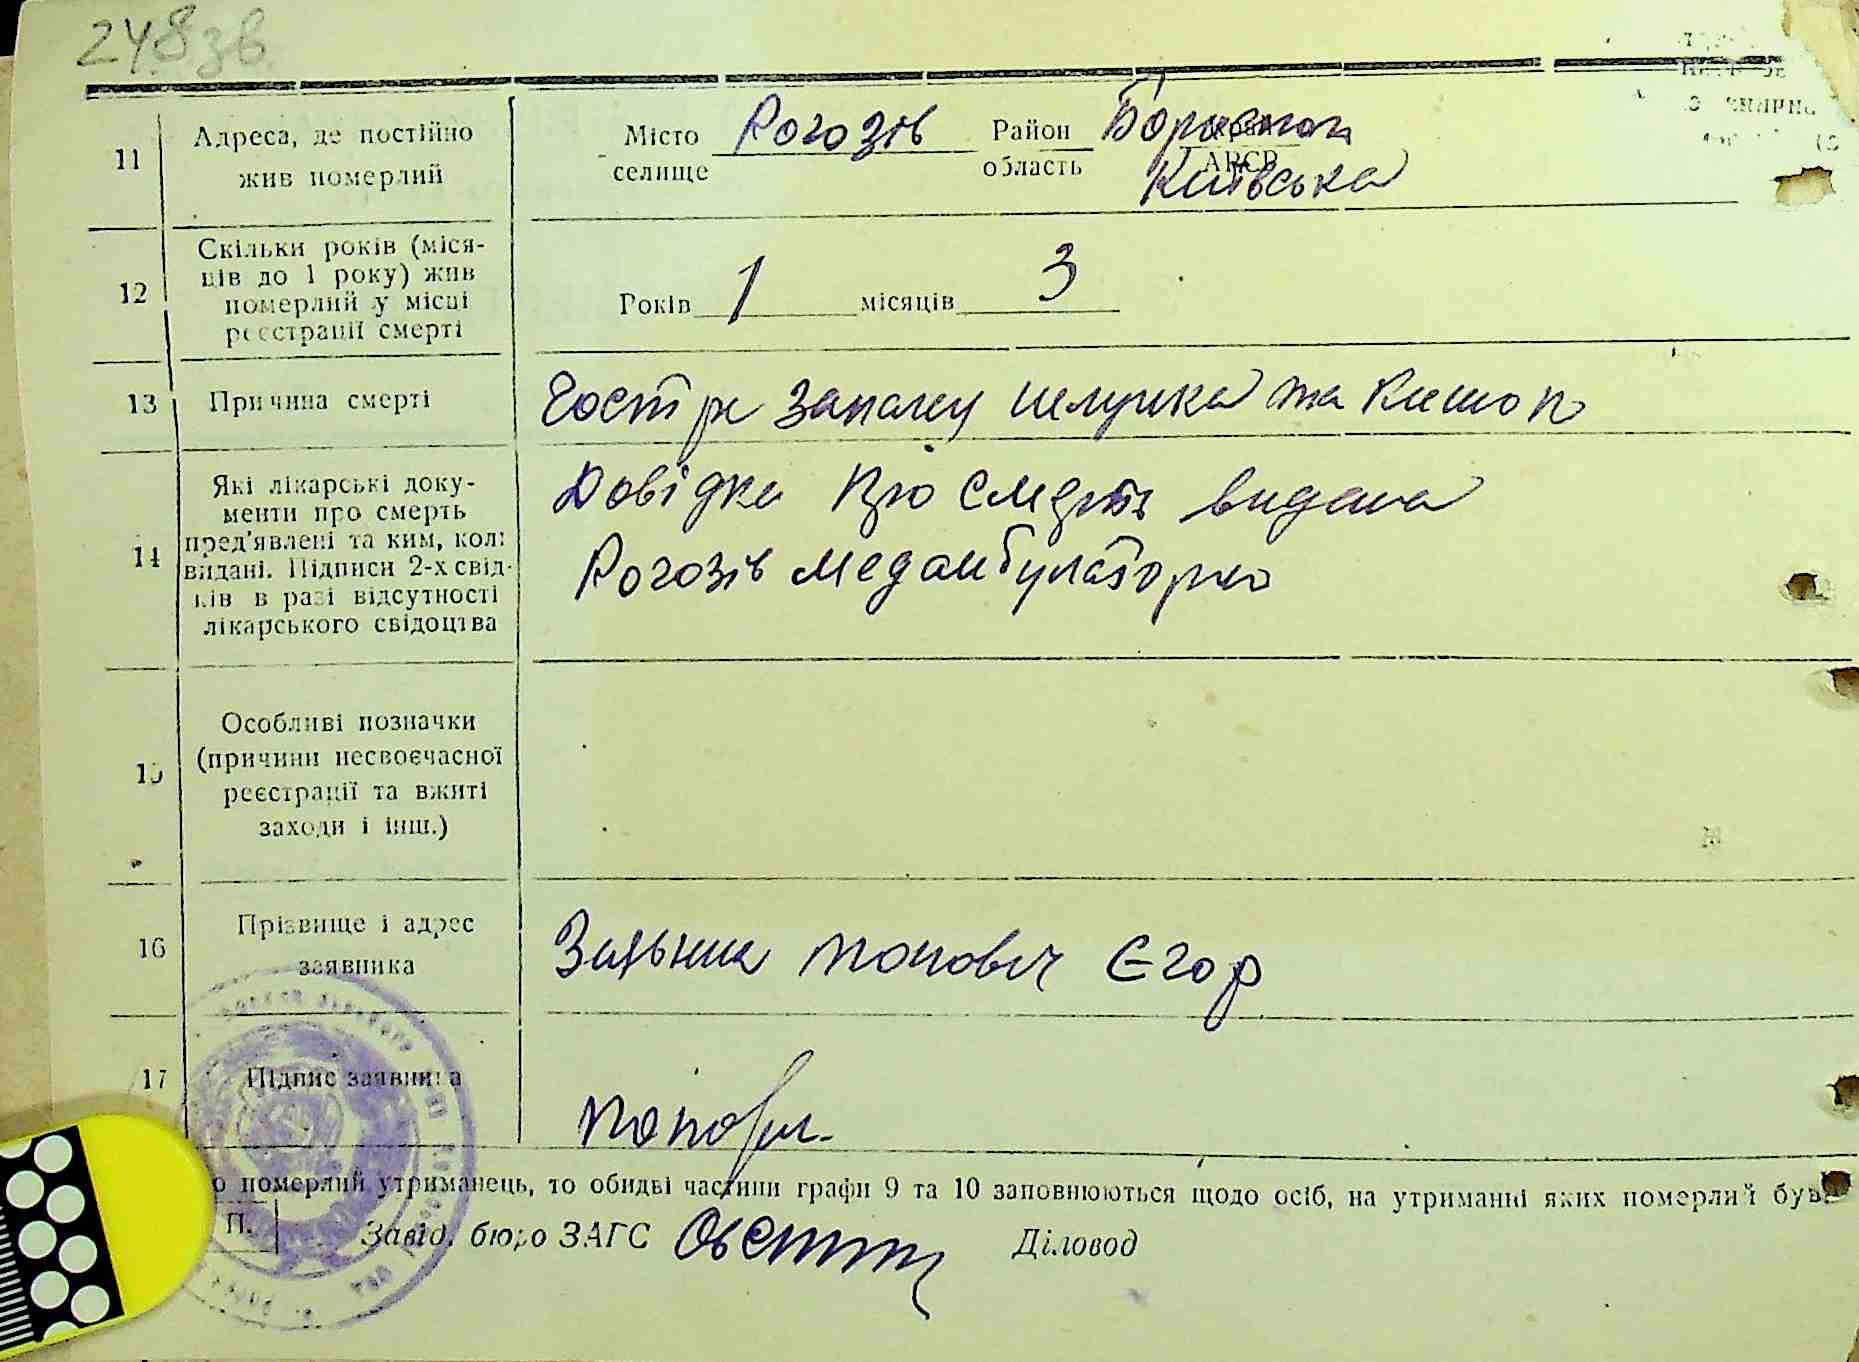 248зв
11
Адреса, де постійно
жив померлий
Місто Рогозів Район Бориспол
селище область АРСР
Київська
12
Скільки років (міся-
ців до 1 року) жив
померлий у місці
реєстрації смерті
Років 1 місяців 3
13
Причина смерті
Гостре запалец шлунка та кишок
14
Які лікарські доку-
менти про смерть
пред'явлені та ким, коли
видані. Підписи 2-х свід-
ків в разі відсутності
лікарського свідоцтва
Довідка про смерть видана
Рогозів медамбулаторію
15
Особливі позначки
(причини несвоєчасної
реєстрації та вжиті
заходи і інш.)
16
Прізвище і адрес
заявника
Попович Єгор
17
Підпис заявника
о померлий утриманець, то обидві частини графи 9 та 10 заповнюються щодо осіб, на утриманні яких померлий був.
П.
Завід. бюро ЗАГС Діловод